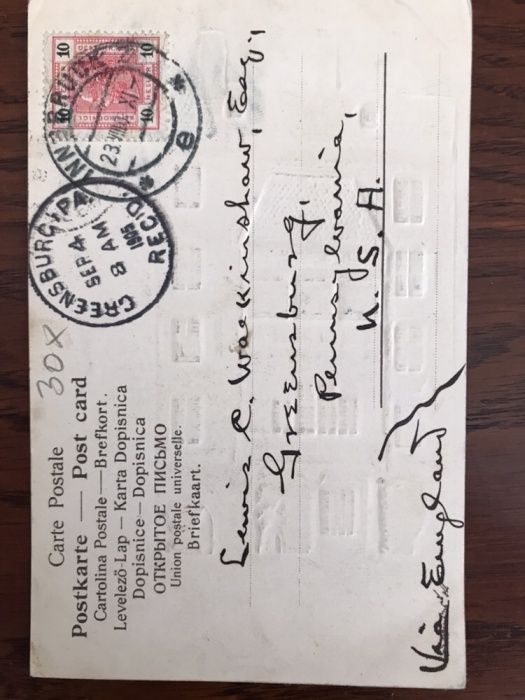 Carte Postale
Postkarte — Post card
Cartolina Postale — Brefkort.
Levelező-Lap — Karta Dopisnica
Dopisnice — Dopisnica
ОТКРЫТОЕ ПИСЬМО
Union postale universelle.
Briefkaart.
30X
GREENSBURG, PA.
SEP 4
8 AM
1905
REC'D.
INNSBRUCK
23
XI
e
10 10
10 10
Lewis C. Walkinshaw, Esq.,
Greensburg,
Pennsylvania,
U. S. A.
Via England